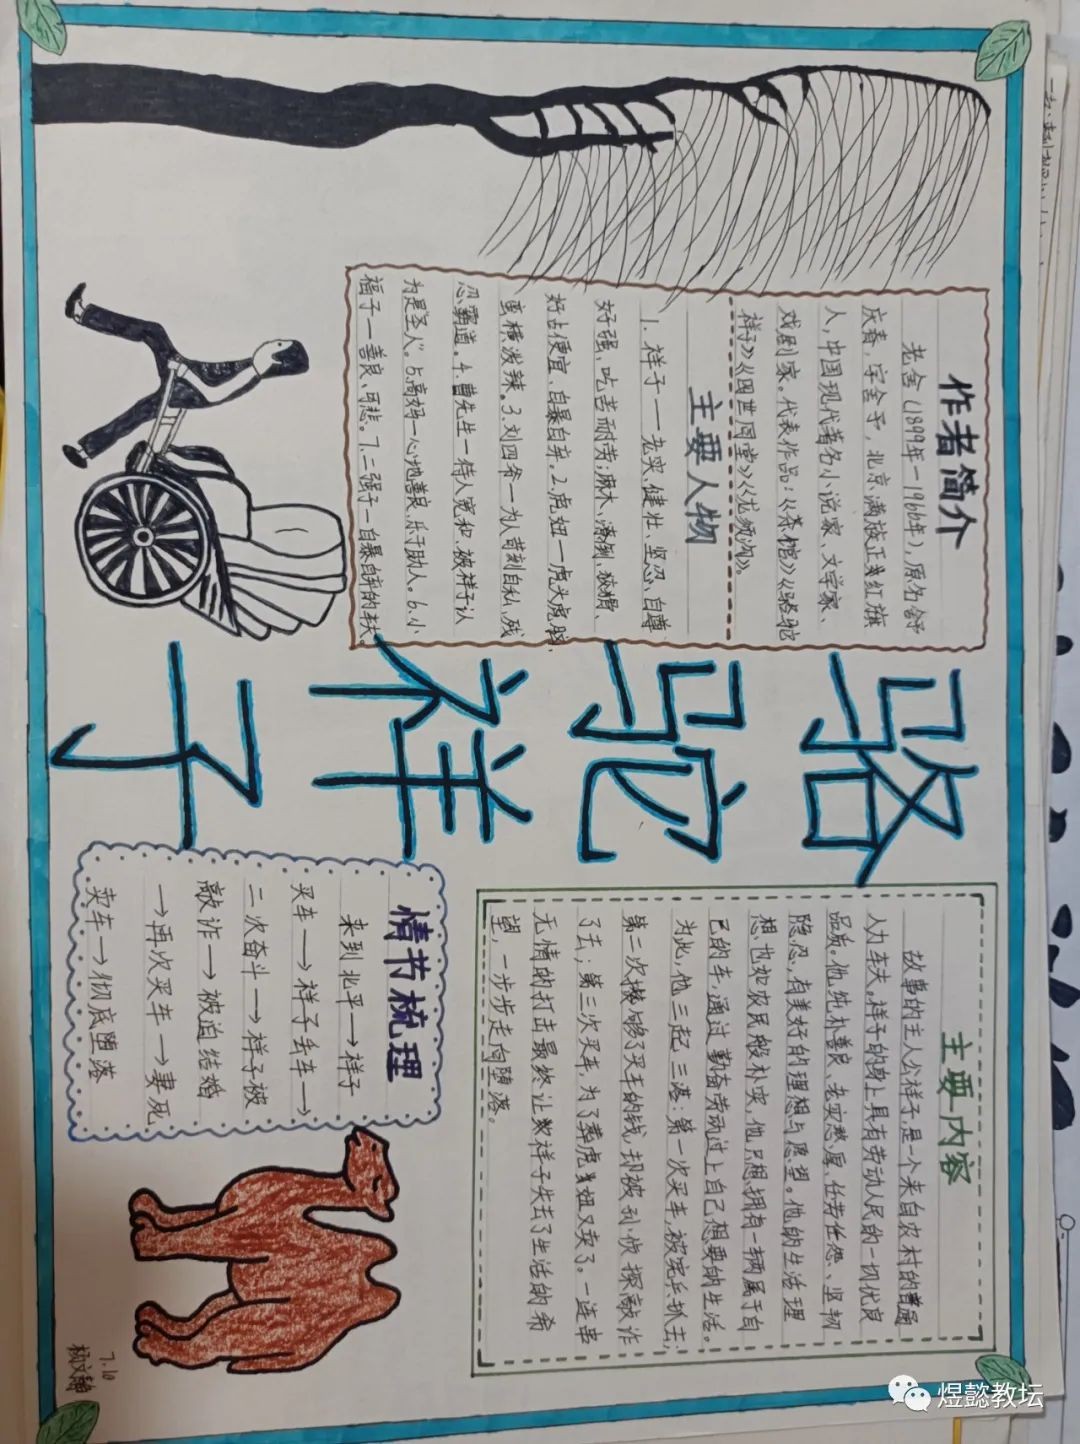 骆驼祥子
作者简介
老舍(1899年-1966年),原名舒
庆春,字舍予,北京满族正红旗
人,中国现代著名小说家、文学家、
戏剧家。代表作品:《茶馆》《骆驼
祥子》《四世同堂》《龙须沟》。
主要人物
1.祥子——老实、健壮、坚忍、自尊
好强、吃苦耐劳;麻木、潦倒、狡猾、
好占便宜、自暴自弃。2.虎妞—虎头虎脑、
蛮横泼辣。3.刘四爷—为人苛刻自私,残
忍霸道。4.曹先生—待人宽和、被祥子认
为是“圣人”。5.高妈—心地善良、乐于助人。6.小
福子—善良、可悲。7.二强子—自暴自弃的车夫
主要内容
故事的主人公祥子,是一个来自农村的普通
人力车夫。祥子的身上具有劳动人民的一切优良
品质。他纯朴善良、老实憨厚、任劳任怨、坚韧
隐忍,有美好的理想与愿望。他的生活理
想也如农民般朴实,他只想拥有一辆属于自
己的车,通过勤奋劳动过上自己想要的生活。
为此,他三起三落:第一次买车,被宪兵抓去;
第二次攒够了买车的钱,却被孙侦探敲诈
了去;第三次买车,为了葬虎妞又卖了。一连串
无情的打击最终让数祥子失去了生活的希
望,一步步走向堕落。
情节梳理
来到北平→祥子
买车→祥子丢车→
二次奋斗→祥子被
敲诈→被迫结婚
→再次买车→妻死
卖车→彻底堕落
7.10
煜懿教坛